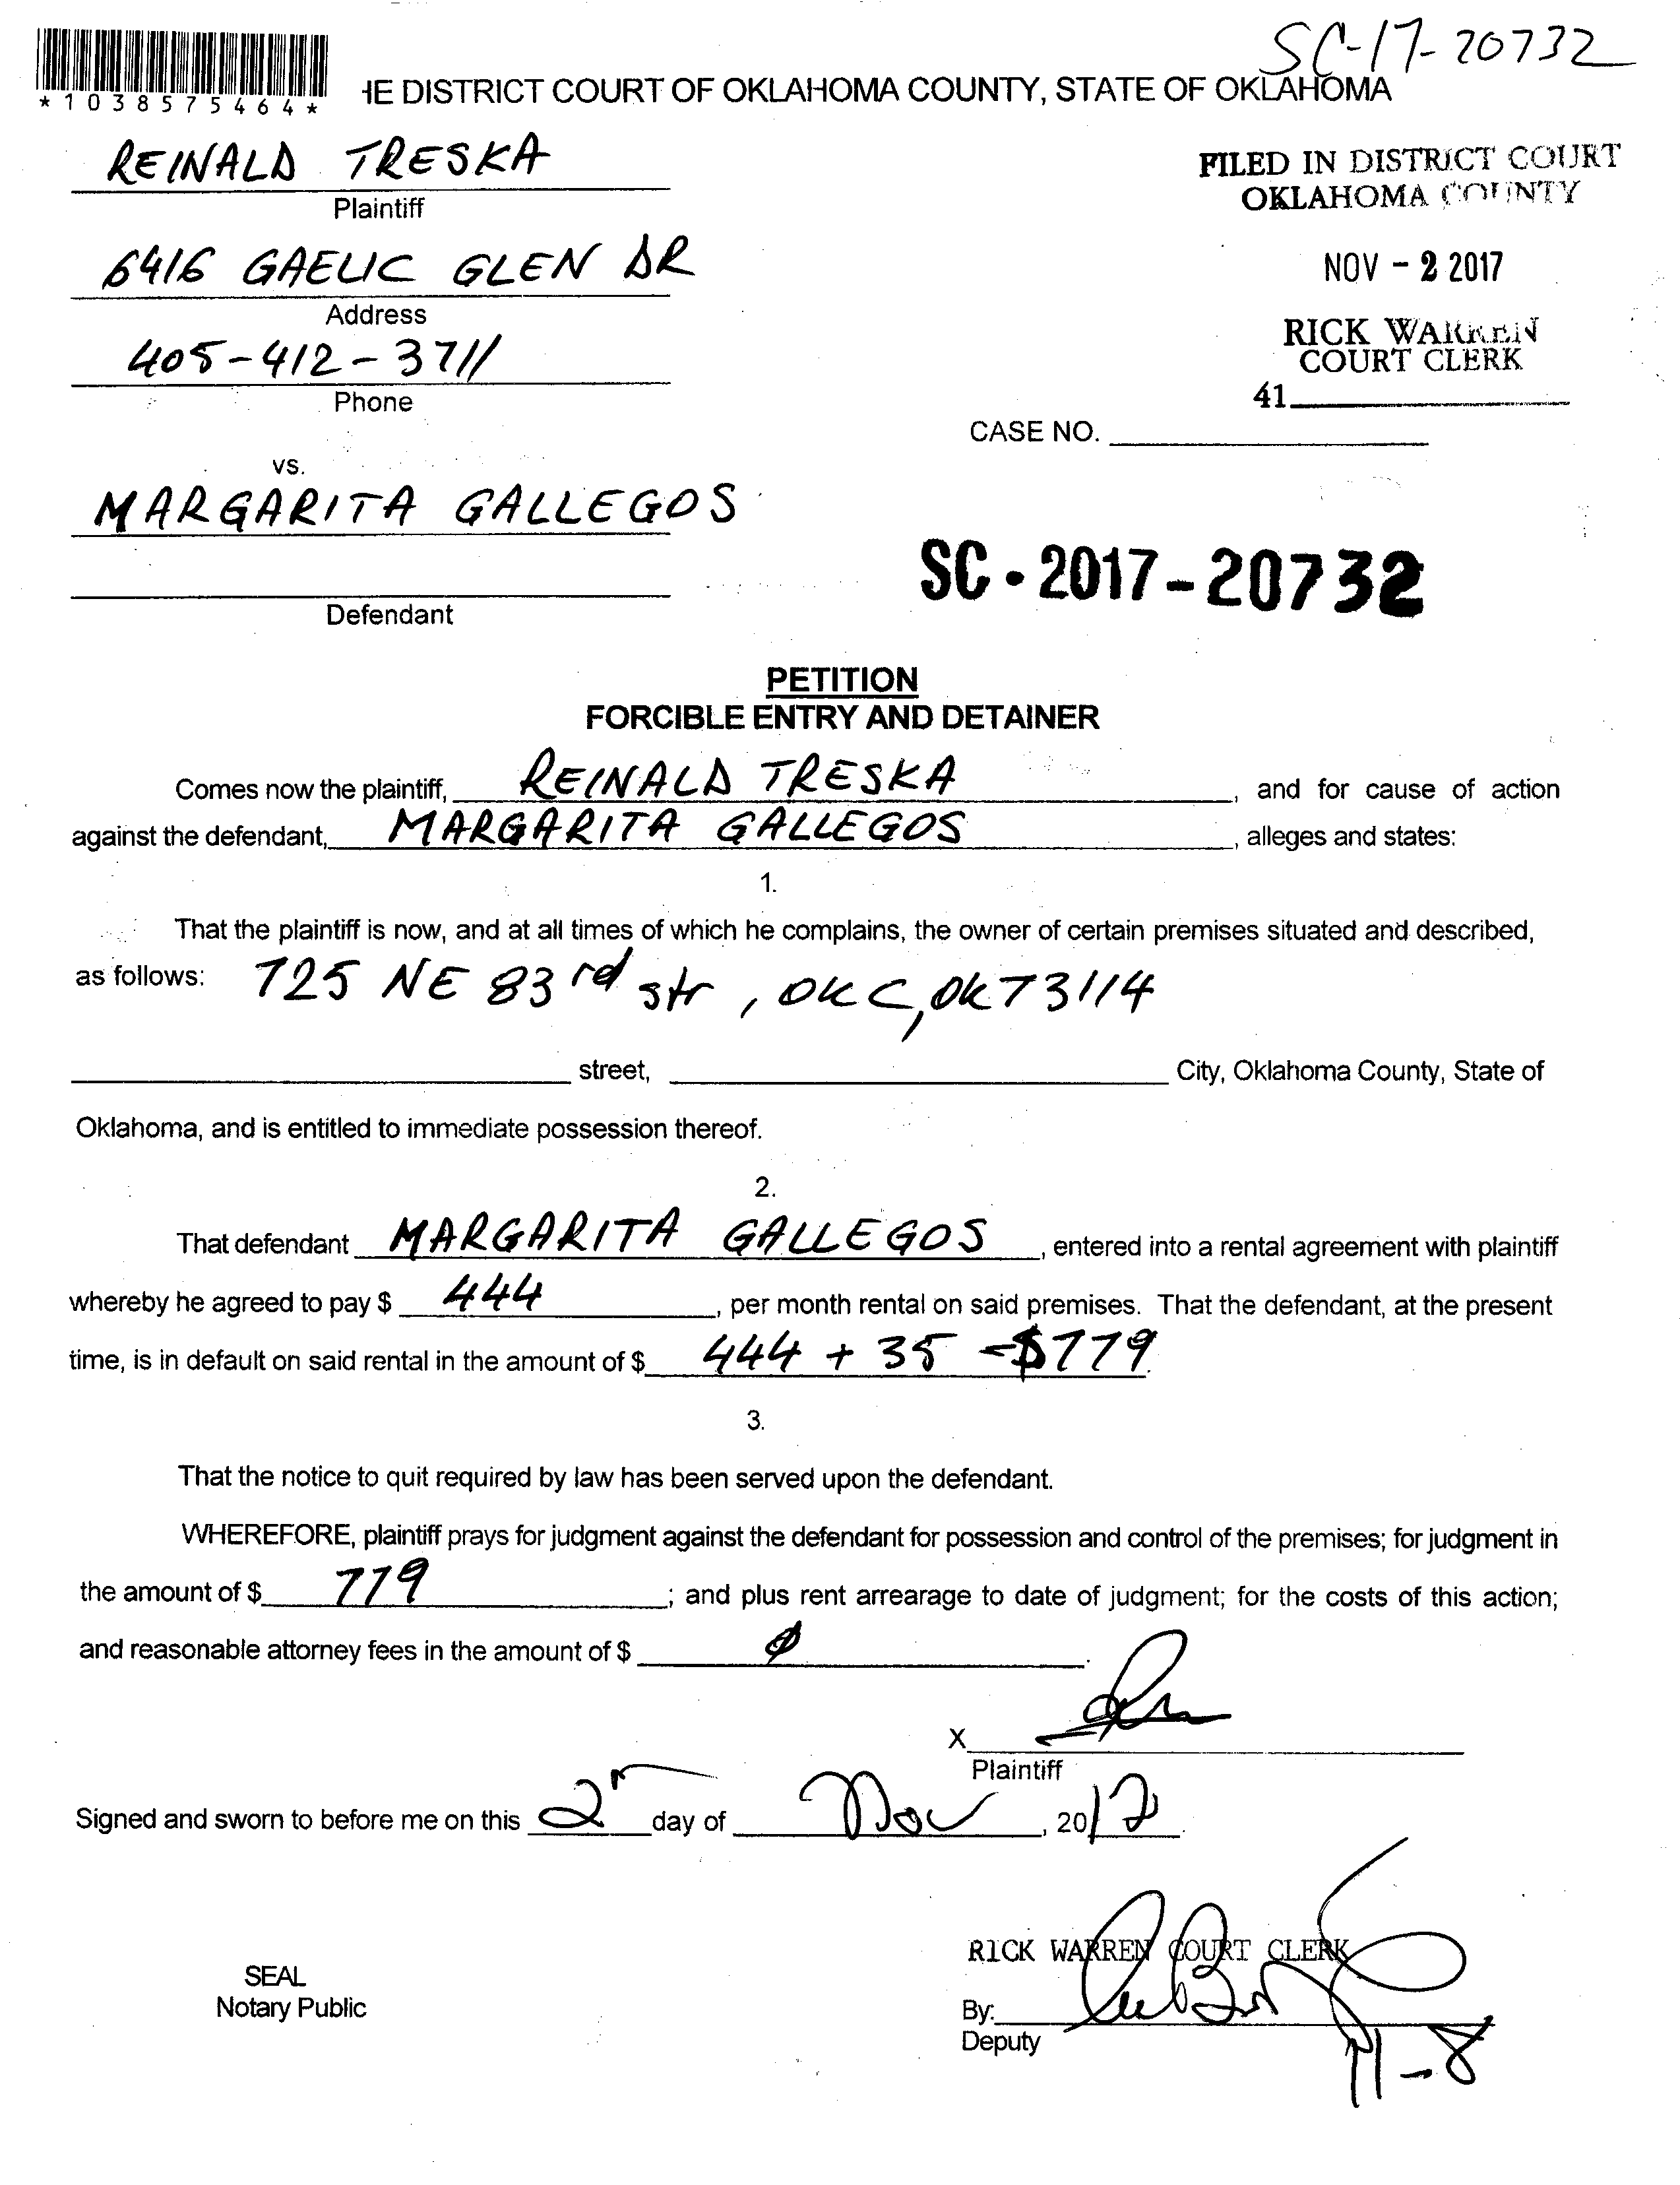 SC-17-20732
*1038575464*
HE DISTRICT COURT OF OKLAHOMA COUNTY, STATE OF OKLAHOMA
REINALD TRESKA
Plaintiff
FILED IN DISTRICT COURT
OKLAHOMA COUNTY
6416 GAELIC GLEN DR
Address
NOV - 2 2017
405-412-3711
Phone
RICK WARREN
COURT CLERK
41
CASE NO.
vs.
MARGARITA GALLEGOS
Defendant
SC - 2017 - 20732
PETITION
FORCIBLE ENTRY AND DETAINER
Comes now the plaintiff, REINALD TRESKA, and for cause of action
against the defendant, MARGARITA GALLEGOS, alleges and states:
1.
That the plaintiff is now, and at all times of which he complains, the owner of certain premises situated and described,
as follows: 725 NE 83rd str, OKC, OK 73114
street, City, Oklahoma County, State of
Oklahoma, and is entitled to immediate possession thereof.
2.
That defendant MARGARITA GALLEGOS, entered into a rental agreement with plaintiff
whereby he agreed to pay $ 444, per month rental on said premises. That the defendant, at the present
time, is in default on said rental in the amount of $ 444 + 35 =$779.
3.
That the notice to quit required by law has been served upon the defendant.
WHEREFORE, plaintiff prays for judgment against the defendant for possession and control of the premises; for judgment in
the amount of $ 779; and plus rent arrearage to date of judgment; for the costs of this action;
and reasonable attorney fees in the amount of $ 0.
X
Plaintiff
Signed and sworn to before me on this 2n day of Nov, 2017.
RICK WARREN COURT CLERK
SEAL
Notary Public
By:
Deputy
11-8